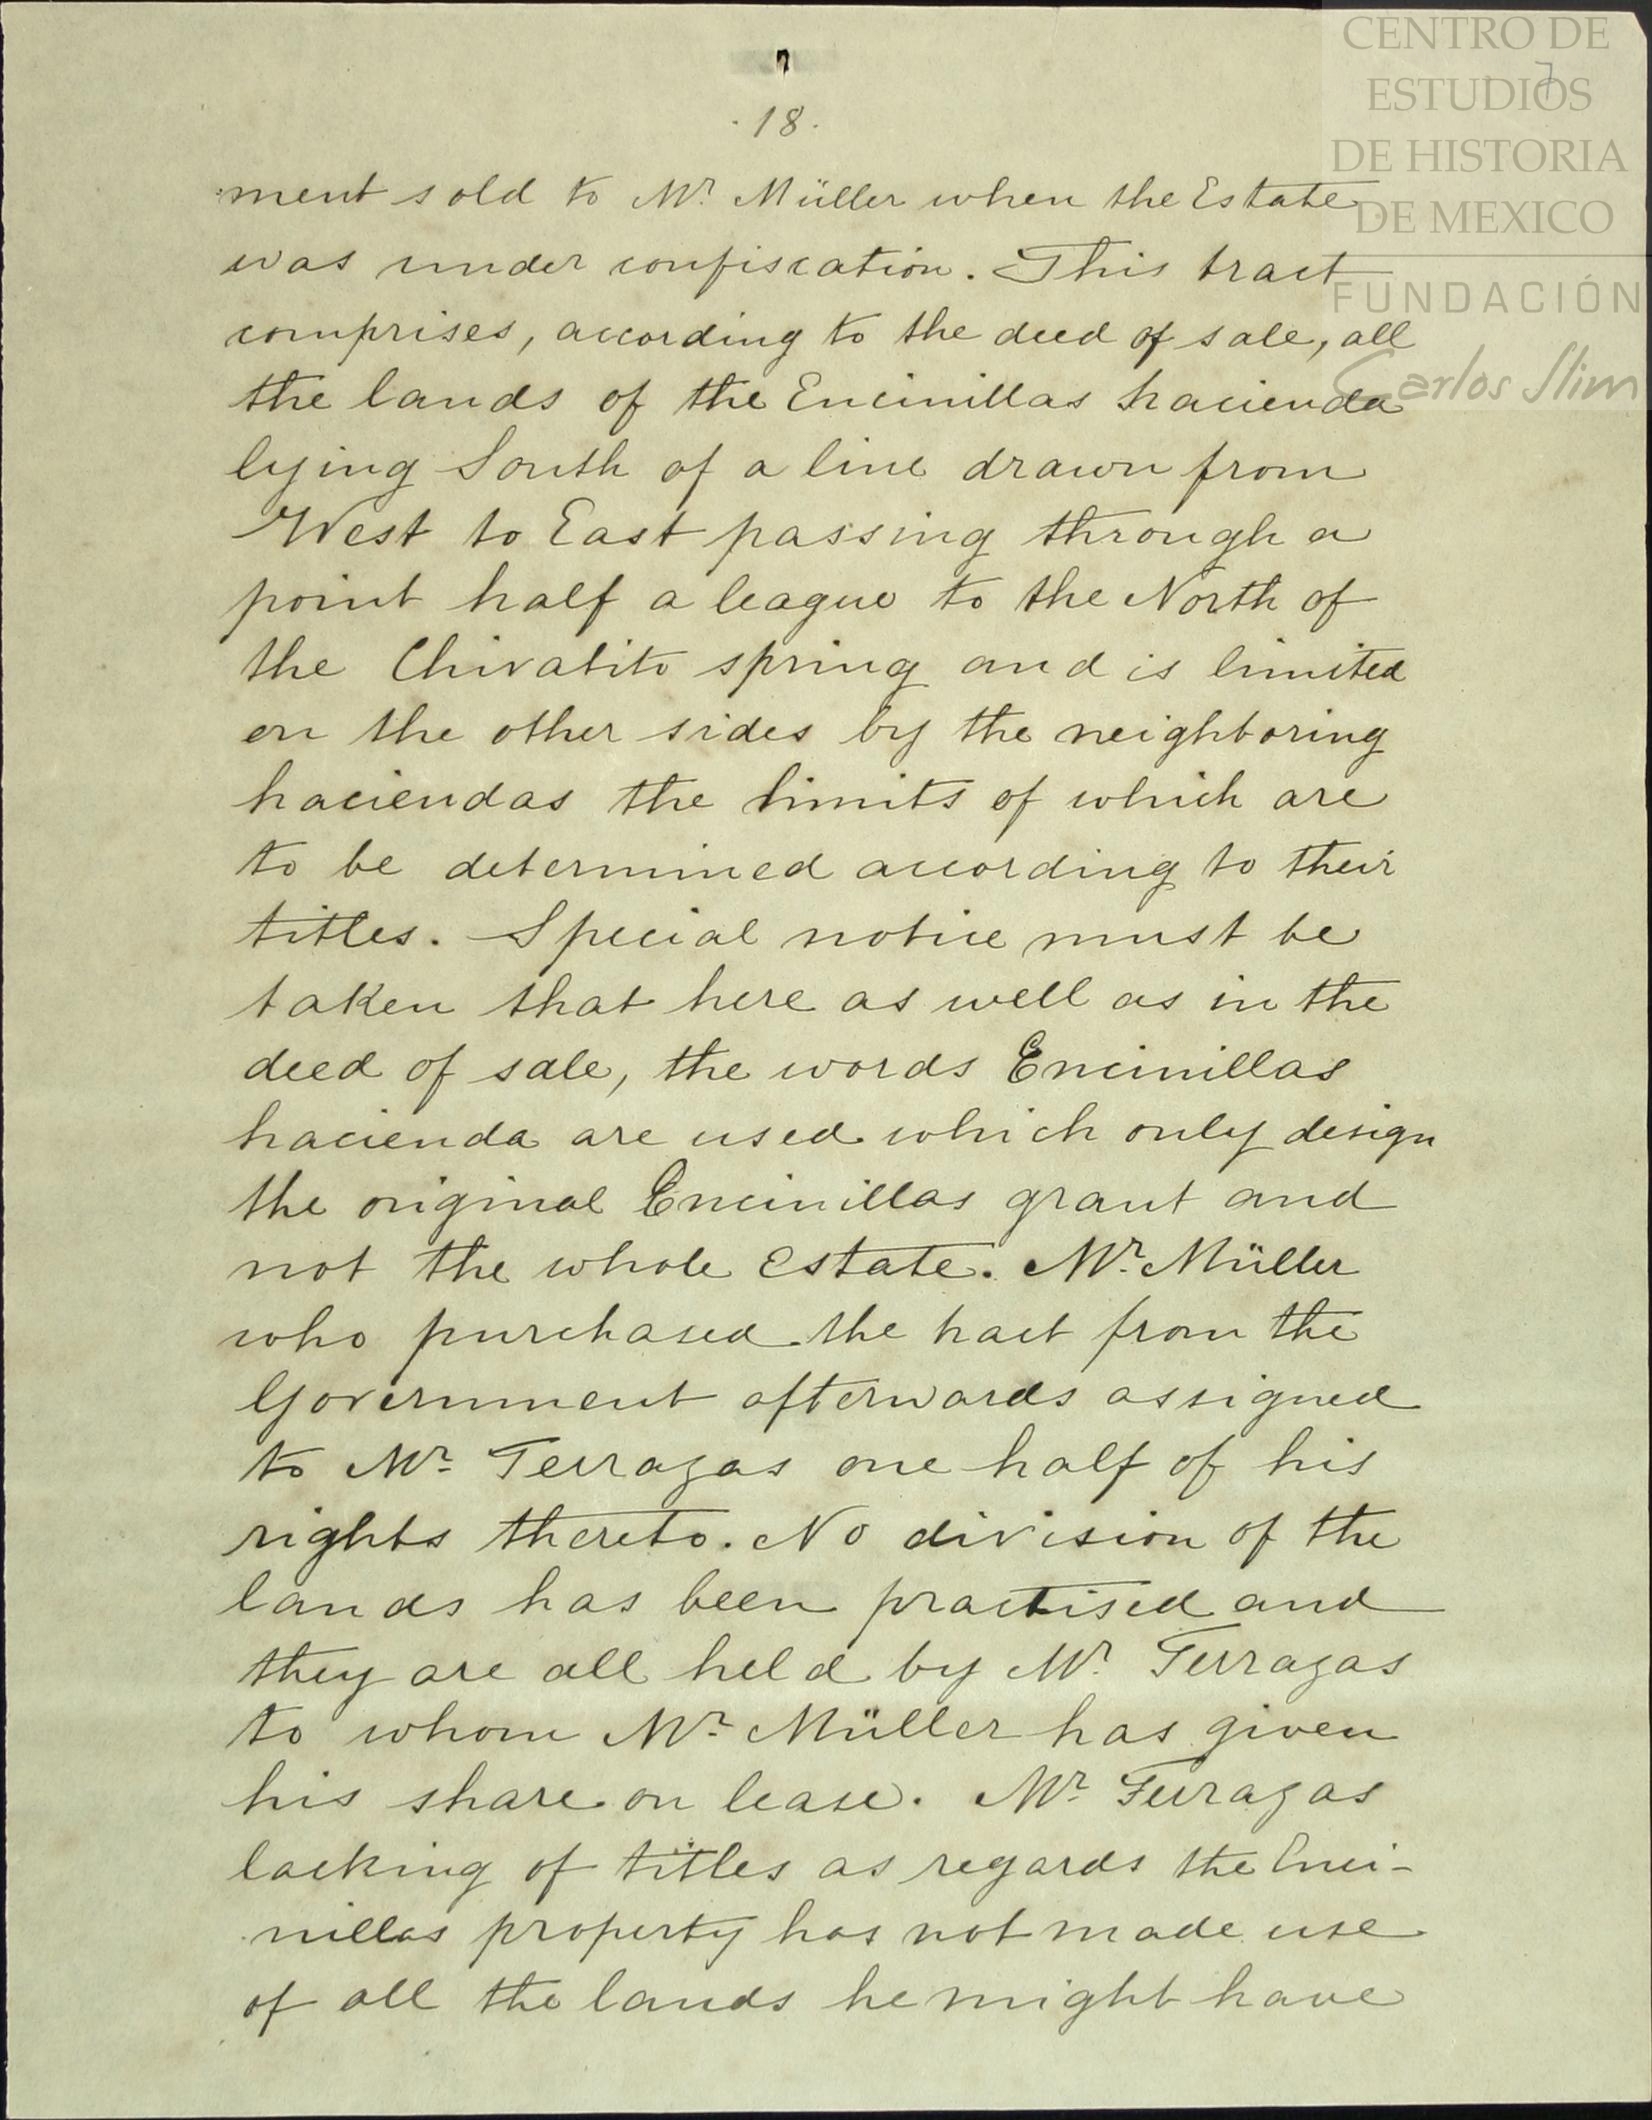 7
18.
CENTRO DE
ESTUDIOS
DE HISTORIA
DE MEXICO
FUNDACIÓN
Carlos Slim
7
ment sold to Mr. Müller when the Estate
was under confiscation. This tract
comprises, according to the deed of sale, all
the lands of the Encinillas hacienda
lying South of a line drawn from
West to East passing through a
point half a league to the North of
the Chivatito spring and is limited
on the other sides by the neighboring
haciendas the limits of which are
to be determined according to their
titles. Special notice must be
taken that here as well as in the
deed of sale, the words Encinillas
hacienda are used which only design
the original Encinillas grant and
not the whole Estate. Mr. Müller
who purchased the tract from the
Government afterwards assigned
to Mr. Terrazas one half of his
rights thereto. No division of the
lands has been practised and
they are all held by Mr. Terrazas
to whom Mr. Müller has given
his share on lease. Mr. Terrazas
lacking of titles as regards the Enci-
nillas property has not made use
of all the lands he might have